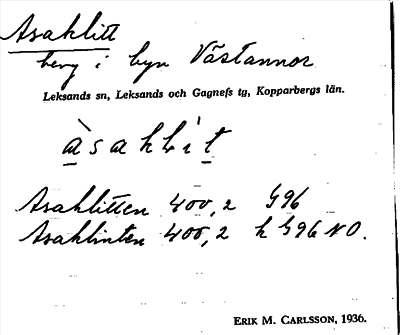 Asaklitt
berg i byn Västannor
Leksands sn, Leksands och Gagnefs tg, Kopparbergs län.
àsaklìt
Asaklitten 400,2 G96
Asaklinten 400,2 h G96 NO.
ERIK M. CARLSSON, 1936.